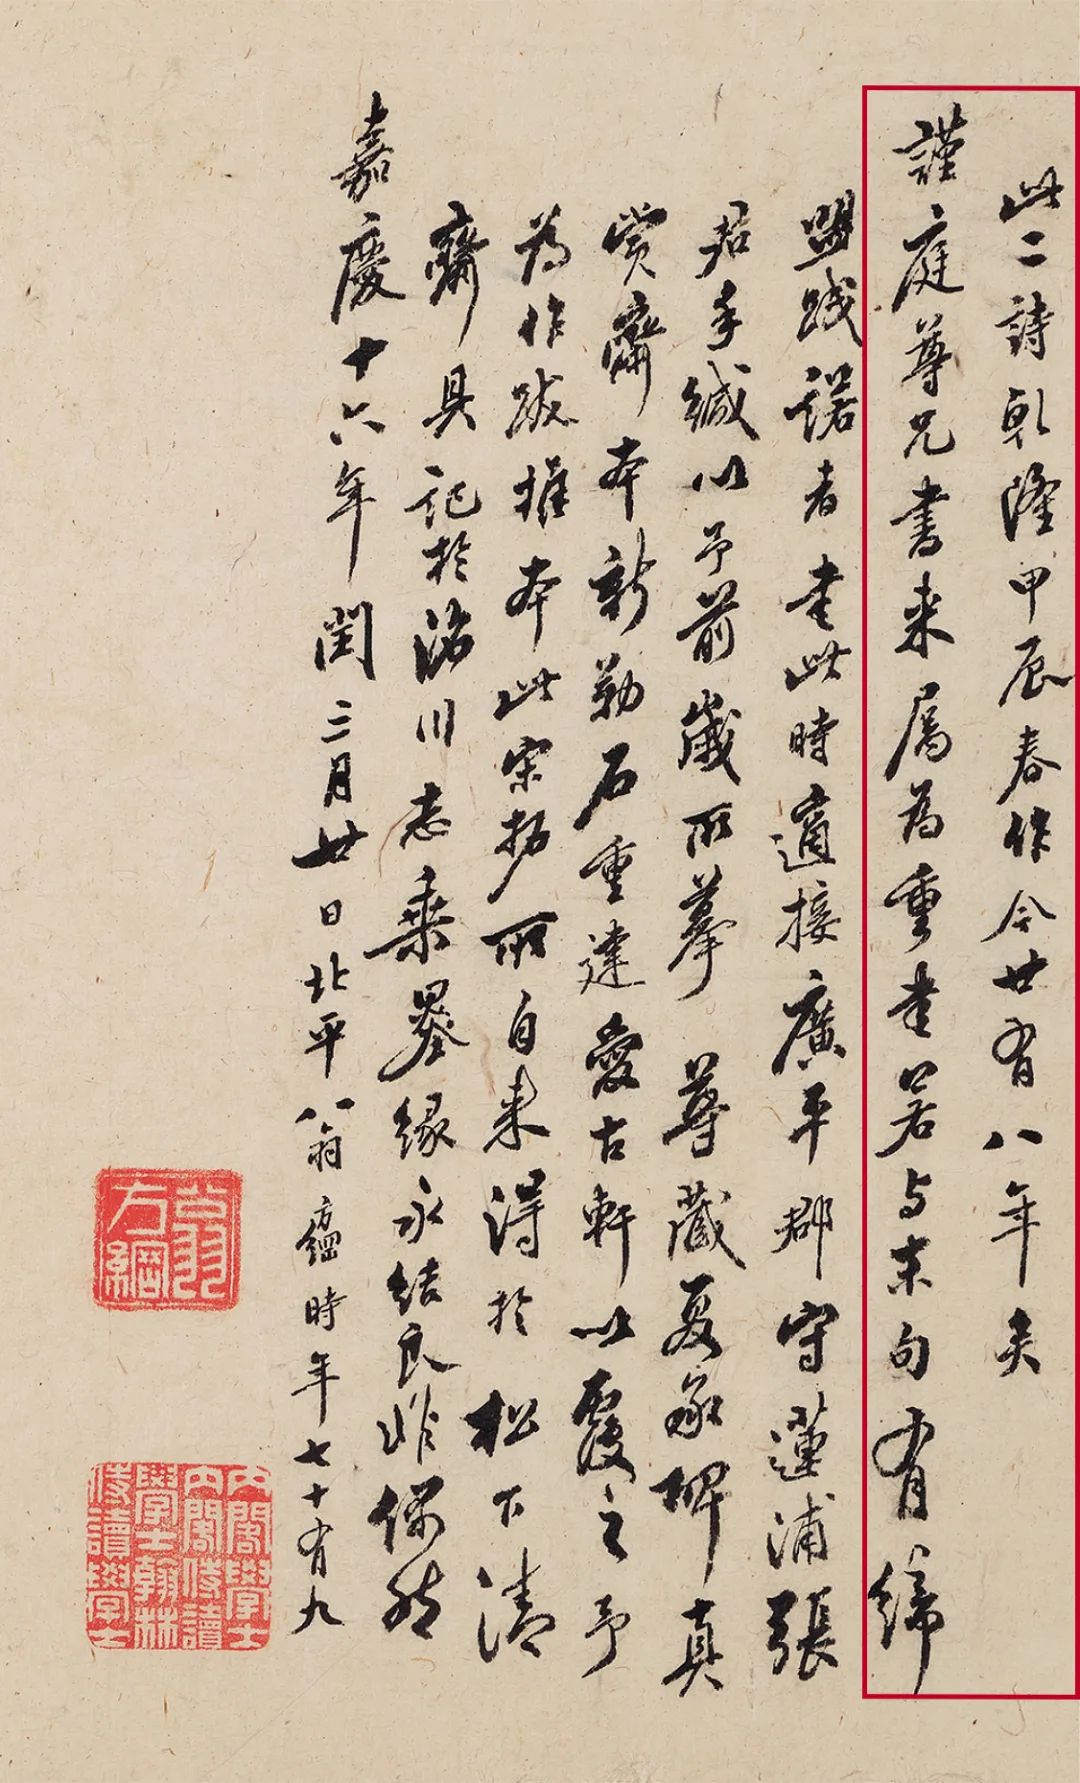 此二詩乾隆甲辰春作今廿有八年矣
謹庭尊兄書来属為重書若与末句有締
盟踐諾者書此時適接廣平郡守蓮浦張
君手緘以予前歲所摹 尊藏夏承碑真
賞齋本新勒石重建愛古軒以覆之予
為作跋推本此宋拓所自来得於松下清
齋具記於洺川志乘墨緣永結良非偶然
嘉慶十六年閏三月廿日北平翁方綱時年七十有九
翁方綱
內閣學士內閣侍讀學士翰林侍讀學士